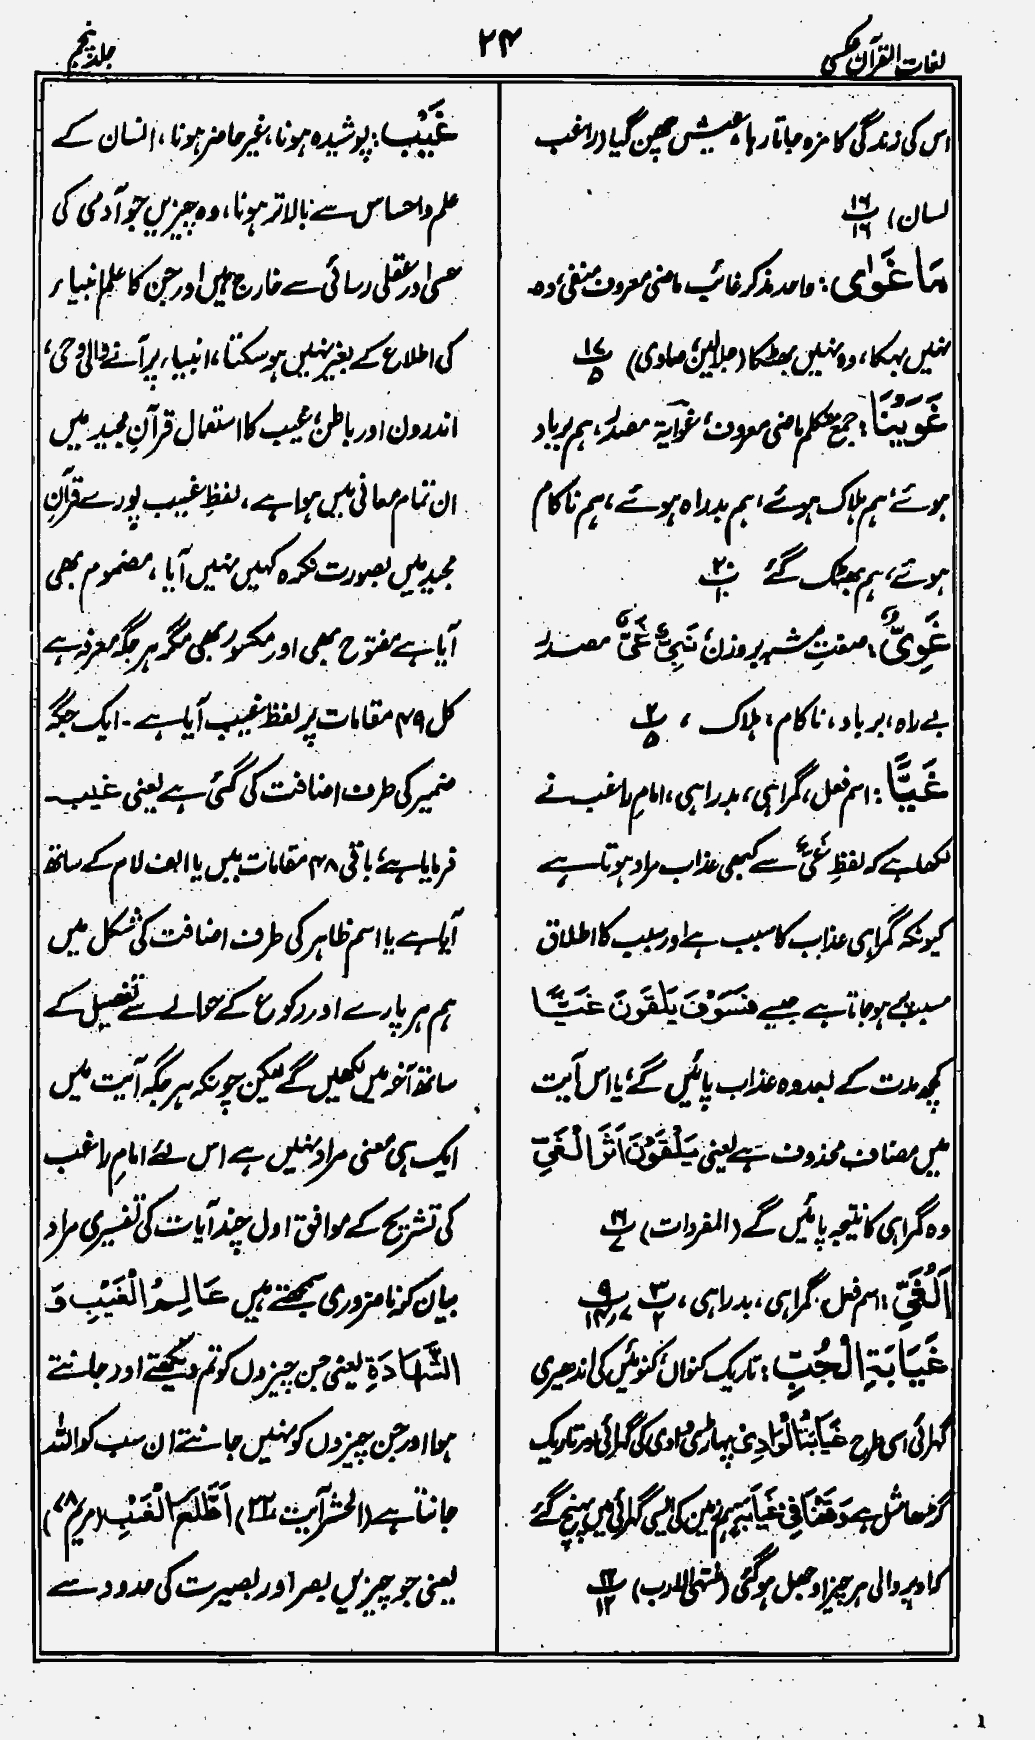 لغات القرآن عکسی
۲۴
جلد پنجم
اس کی زندگی کا مزہ جاتا رہا، عیش چھن گیا (راغب
لسان) پ ۱۶/۱۶
مَا غَوٰی: واحد مذکر غائب، ماضی معروف منفی، وہ
نہیں بہکا، وہ نہیں بھٹکا (جلالین، صاوی) پ ۲۷/۵
غَوَیْنَا: جمع متکلم ماضی معروف، غوایۃ مصدر، ہم برباد
ہوئے، ہم ہلاک ہوئے، ہم بدراہ ہوئے، ہم ناکام
ہوئے، ہم بھٹک گئے پ ۲۰/۱۰
غَوِیٌّ: صفت مشبہ بروزن نَبِیٌّ غَیٌّ مصدر
بے راہ، برباد، ناکام، ہلاک، پ ۲۰/۵
غَیًّا: اسم فعل، گمراہی، بدراہی، امام راغب نے
لکھا ہے کہ لفظِ غَیٌّ سے کبھی عذاب مراد ہوتا ہے
کیونکہ گمراہی عذاب کا سبب ہے اور سبب کا اطلاق
مسبب پر ہو جاتا ہے جیسے فَسَوْفَ یَلْقَوْنَ غَیًّا
کچھ مدت کے بعد وہ عذاب پائیں گے، یا اس آیت
میں مضاف محذوف ہے یعنی یَلْقَوْنَ اَثَرَ الْغَیِّ
وہ گمراہی کا نتیجہ پائیں گے (المفردات) پ ۱۶/۷
اَلْغَیِّ: اسم فعل، گمراہی، بدراہی، پ ۳/۲ پ ۹/۷، ۱۴
غَیَابَۃِ الْجُبِّ: تاریک کنواں، کنوئیں کی اندھیری
گہرائی اسی طرح غَیَابَۃُ الْوَادِی پہاڑی وادی کی گہرائی اور تاریک
گڑھا مثل ہے وَقَعْنَا فِی غَیَابَۃٍ ہم زمین کی ایسی گہرائی میں پہنچ گئے
کہ اوپر والی ہر چیز اوجھل ہو گئی (منتہی الارب) پ ۱۲/۱۲
غَیْب: پوشیدہ ہونا، غیر حاضر ہونا، انسان کے
علم و احساس سے بالاتر ہونا، وہ چیزیں جو آدمی کی
حسی اور عقلی رسائی سے خارج ہیں اور جن کا علم انبیاء
کی اطلاع کے بغیر نہیں ہو سکتا، انبیاء پر آنے والی وحی،
اندرون اور باطن، غیب کا استعمال قرآن مجید میں
ان تمام معانی میں ہوا ہے، لفظِ غیب پورے قرآن
مجید میں بصورت نکرہ کہیں نہیں آیا، مضموم بھی
آیا ہے مفتوح بھی اور مکسور بھی مگر ہر جگہ معرفہ ہے
کل ۴۹ مقامات پر لفظ غیب آیا ہے۔ ایک جگہ
ضمیر کی طرف اضافت کی گئی ہے یعنی غیبہ
فرمایا ہے، باقی ۴۸ مقامات میں یا الف لام کے ساتھ
آیا ہے یا اسم ظاہر کی طرف اضافت کی شکل میں
ہم ہر پارے اور رکوع کے حوالے سے تفصیل کے
ساتھ آخر میں لکھیں گے لیکن چونکہ ہر جگہ آیت میں
ایک ہی معنی مراد نہیں ہے اس لئے امام راغب
کی تشریح کے موافق اول چند آیات کی تفسیری مراد
بیان کرنا ضروری سمجھتے ہیں عَالِمُ الْغَیْبِ وَ
الشَّهَادَۃِ یعنی جن چیزوں کو تم دیکھتے اور جانتے
ہو اور جن چیزوں کو نہیں جانتے ان سب کو اللہ
جانتا ہے (الحشر آیت ۲۲) اَطَّلَعَ الْغَیْبَ (مریم ۷۸)
یعنی جو چیزیں بصر اور بصیرت کی حدود سے